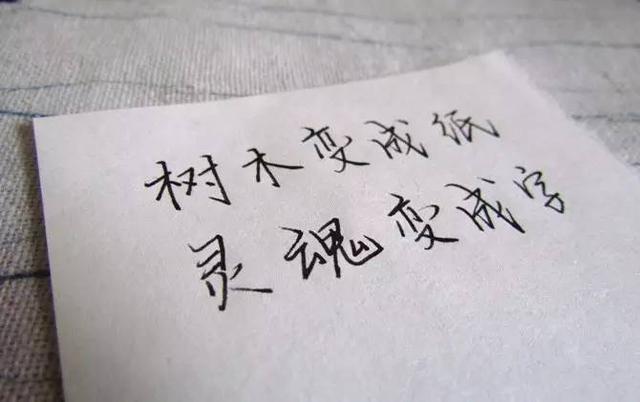 树木变成纸
灵魂变成字